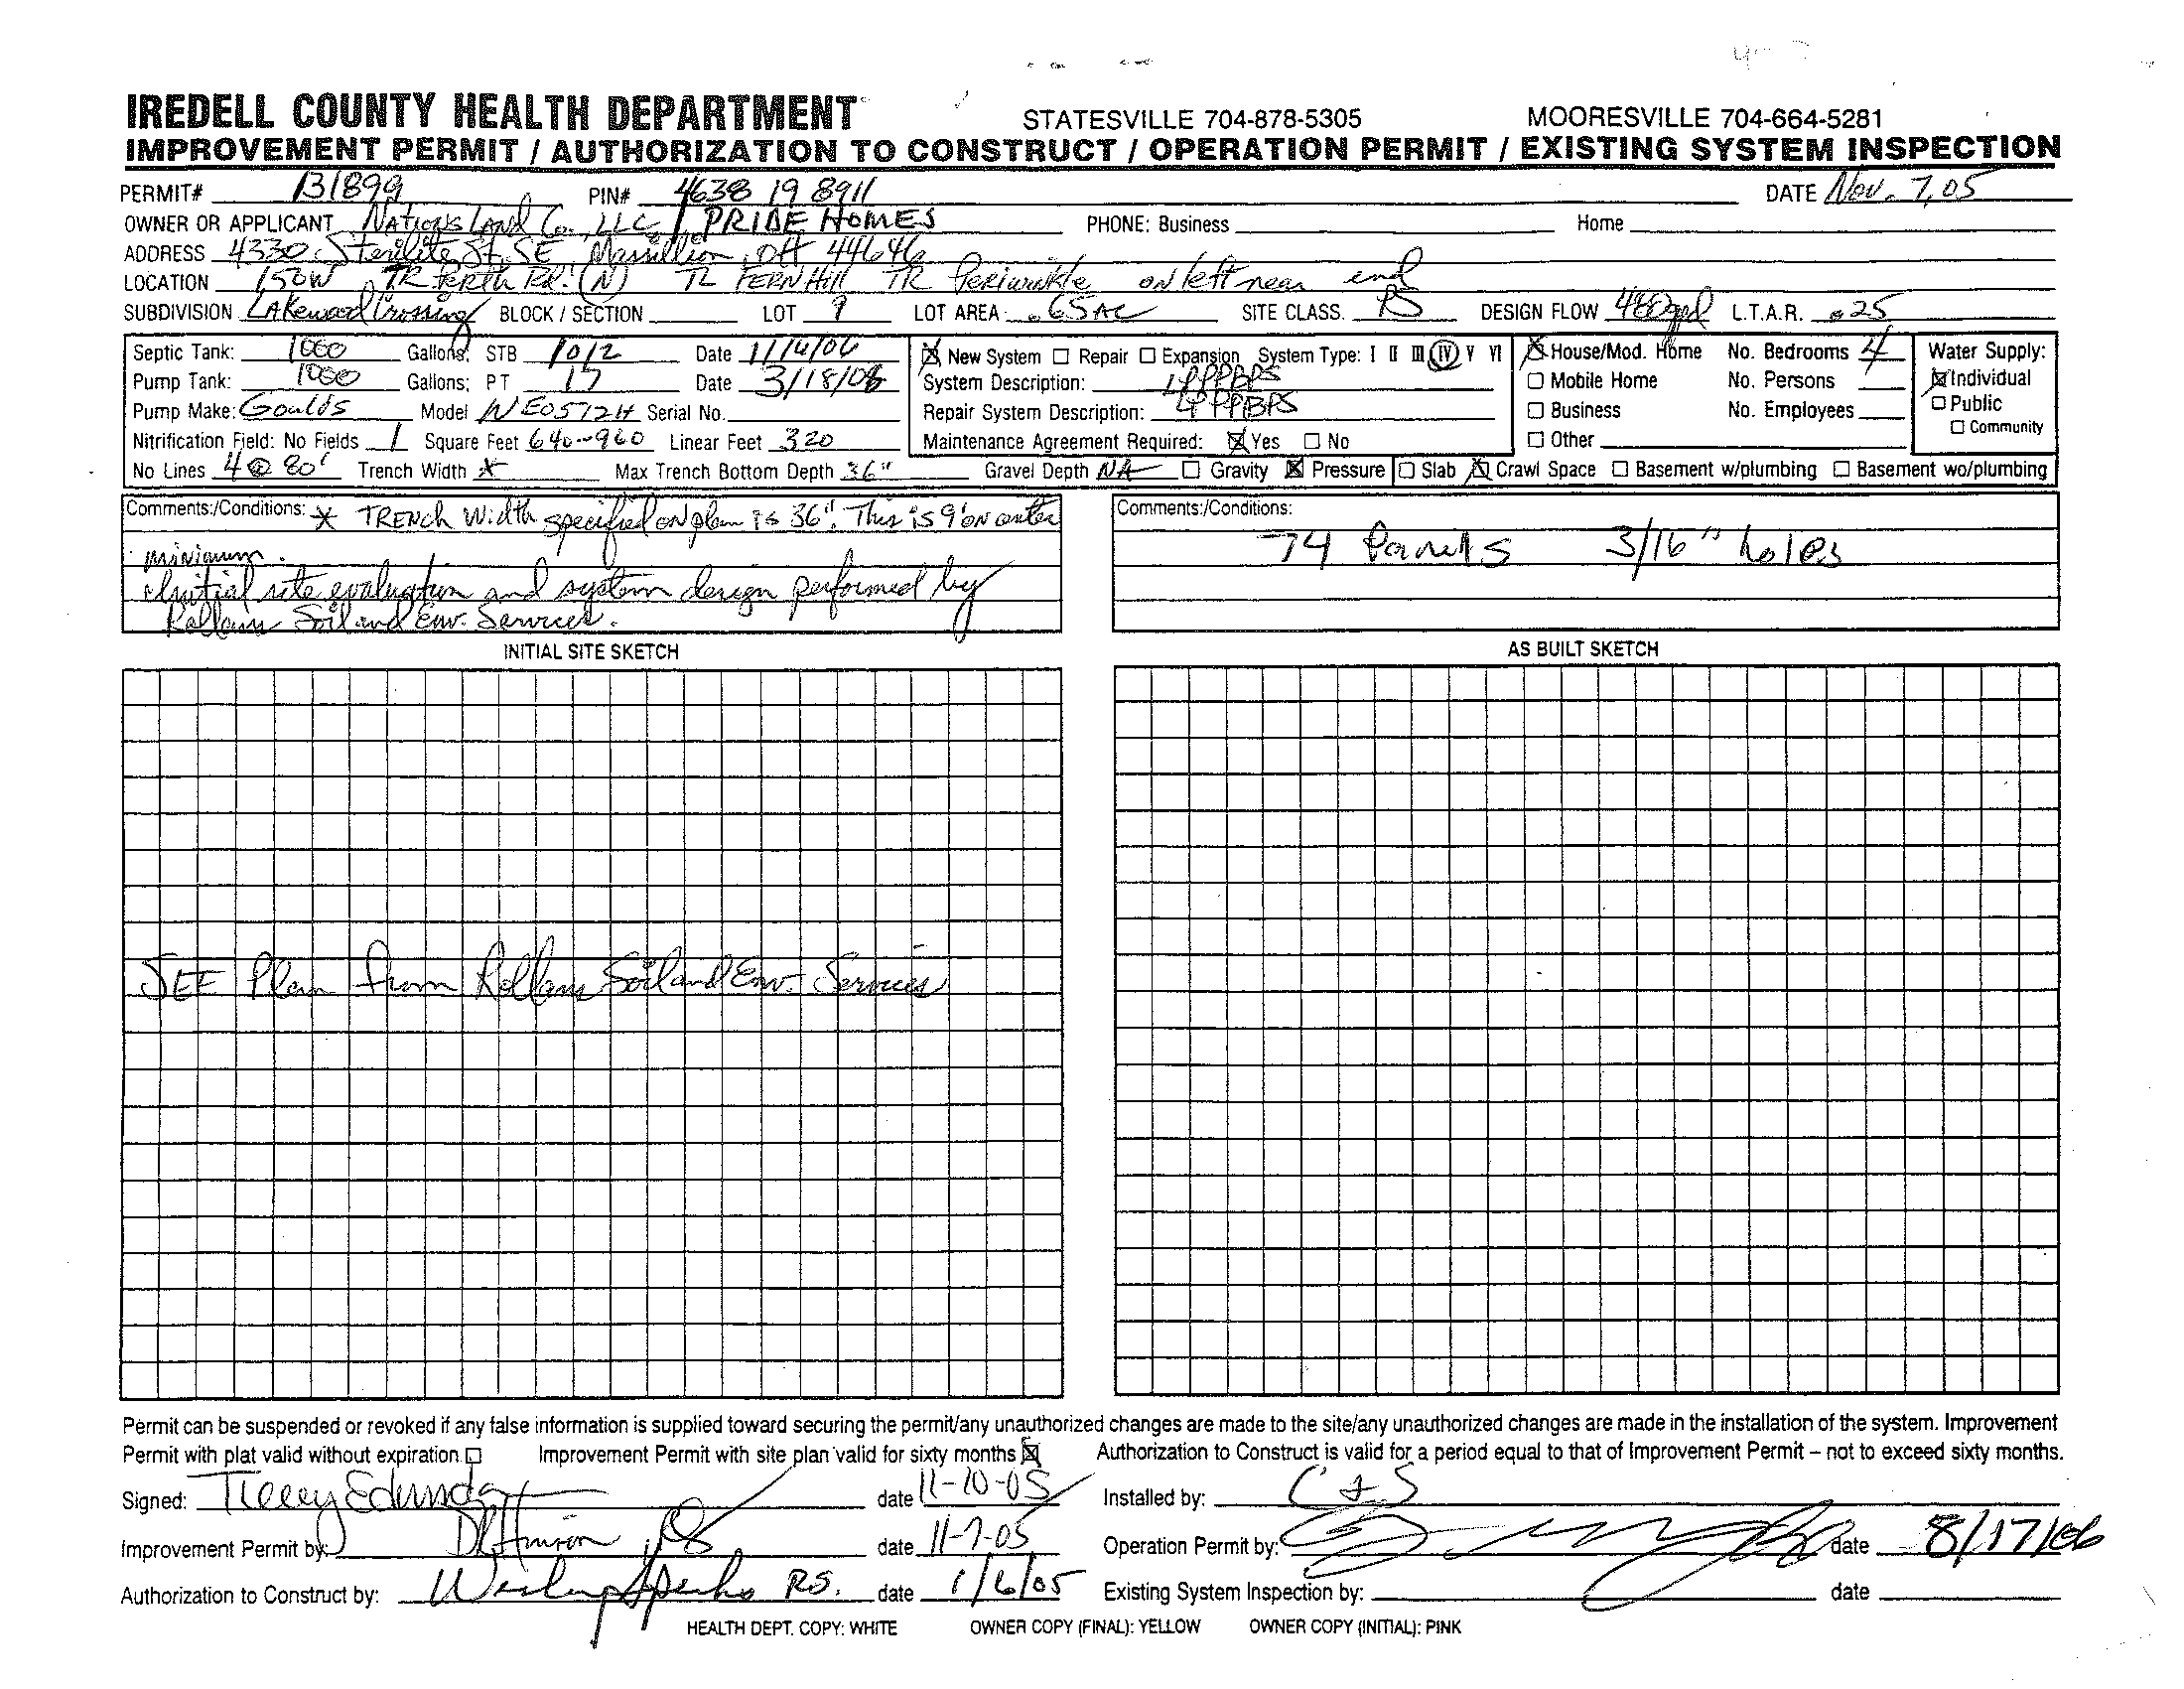 IREDELL COUNTY HEALTH DEPARTMENT STATESVILLE 704-878-5305 MOORESVILLE 704-664-5281
IMPROVEMENT PERMIT / AUTHORIZATION TO CONSTRUCT / OPERATION PERMIT / EXISTING SYSTEM INSPECTION
PERMIT# 131899 PIN# 4638 19 8911 DATE Nov. 7, 05
OWNER OR APPLICANT Nations Land Co., LLC / PRIDE HOMES PHONE: Business Home
ADDRESS 4330 Sterilite St. SE, Massillion, OH 44646
LOCATION 150W TR Perth Rd. (N) TL FERN Hill TR Periwinkle on left near end
SUBDIVISION Lakewood Crossing BLOCK / SECTION LOT 9 LOT AREA .65AC SITE CLASS. PS DESIGN FLOW 480gpd L.T.A.R. .25
Septic Tank: 1000 Gallons; STB 1012 Date
Pump Tank: 1000 Gallons; PT 17 Date 3/18/06
Pump Make: Goulds Model WE0572H Serial No.
Nitrification Field: No Fields 1 Square Feet 640-960 Linear Feet 320
No Lines 4 @ 80' Trench Width * Max Trench Bottom Depth 36" Gravel Depth NA Gravity Pressure
New System Repair Expansion System Type: I II III IV V VI
System Description: LPPPBPS
Repair System Description: LPPPBPS
Maintenance Agreement Required: Yes No
House/Mod. Home No. Bedrooms 4
Mobile Home No. Persons
Business No. Employees
Other
Slab Crawl Space Basement w/plumbing Basement wo/plumbing
Water Supply:
Individual
Public
Community
Comments:/Conditions: * TRENCH Width specified on plan is 36". This is 9' on center
minimum.
Initial site evaluation and system design performed by
Soil and Env. Services.
Comments:/Conditions:
74 Panels 3/16" holes
INITIAL SITE SKETCH
SEE Plan from Soil and Env. Services
AS BUILT SKETCH
Permit can be suspended or revoked if any false information is supplied toward securing the permit/any unauthorized changes are made to the site/any unauthorized changes are made in the installation of the system. Improvement
Permit with plat valid without expiration Improvement Permit with site plan valid for sixty months Authorization to Construct is valid for a period equal to that of Improvement Permit – not to exceed sixty months.
Signed: date 11-10-05 Installed by: C & S
Improvement Permit by: date 11-7-05 Operation Permit by: date 8/17/06
Authorization to Construct by: RS. date 1/6/05 Existing System Inspection by: date
HEALTH DEPT. COPY: WHITE OWNER COPY (FINAL): YELLOW OWNER COPY (INITIAL): PINK